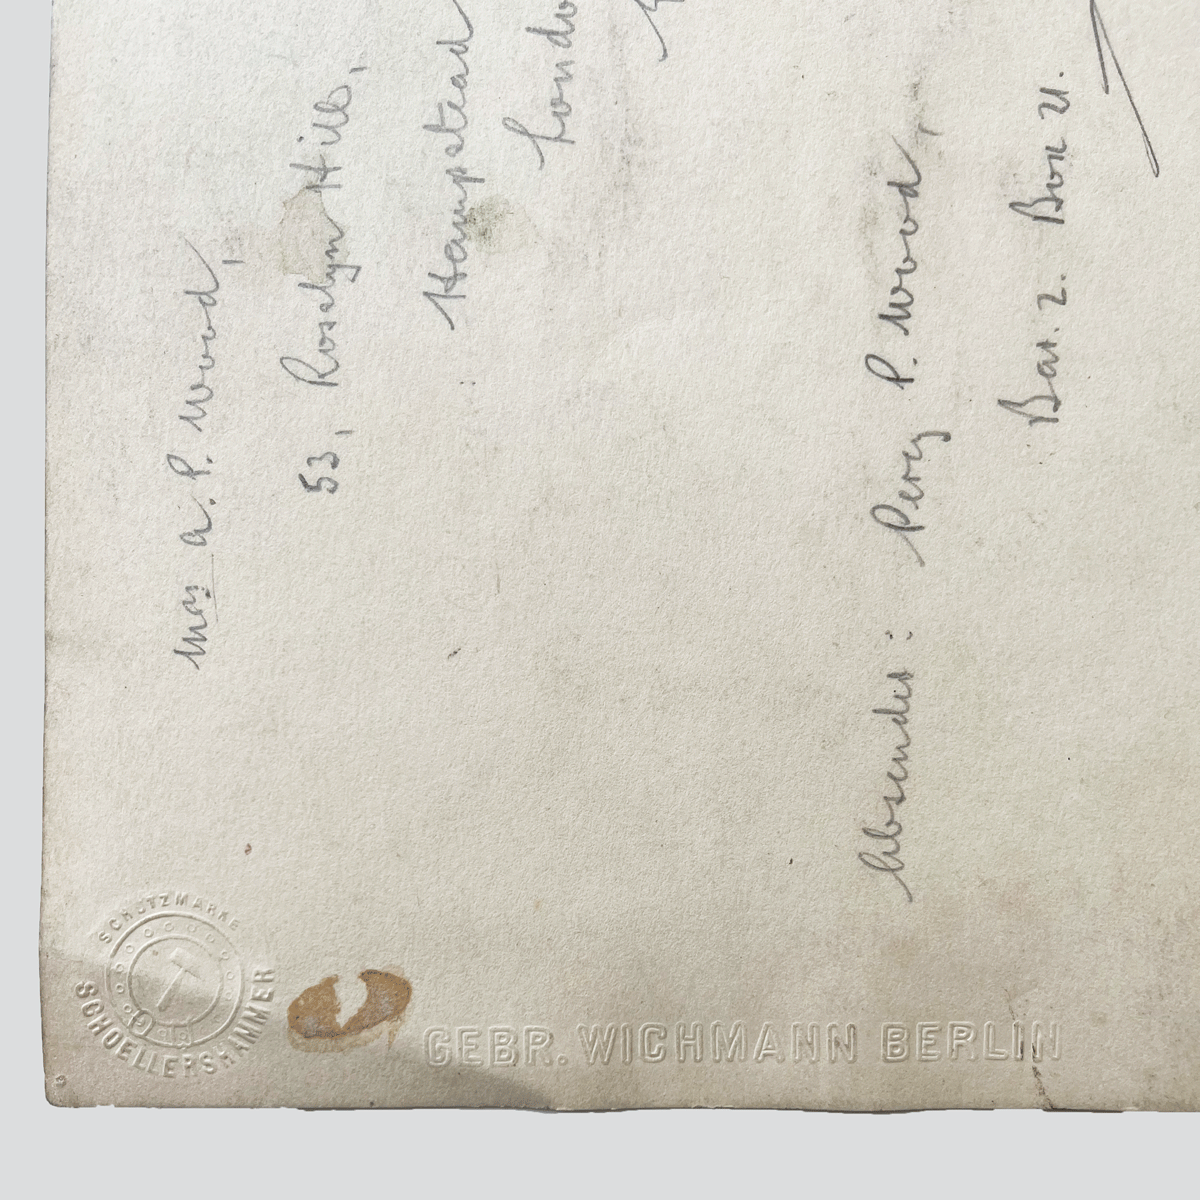 Mrs A. P. Wood,
53, Rosslyn Hill,
Hampstead
Londo
Absender: Percy P. Wood
Bar. 2. Box 21.
SCHUTZMARKE
SCHOELLERSHAMMER
GEBR. WICHMANN BERLIN